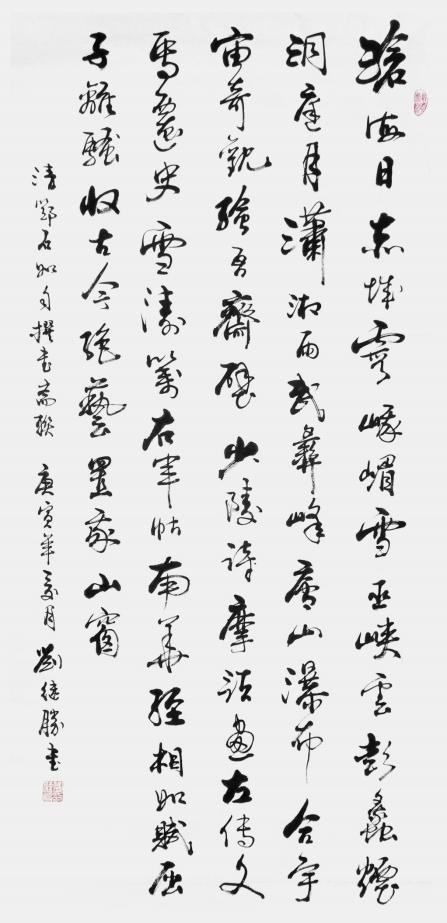 滄海日赤城霞峨嵋雪巫峽雲彭蠡煙
洞庭月瀟湘雨武彝峰廬山瀑布合宇
宙奇觀繪吾齋壁少陵詩摩詰畫左傳文
馬遷史雪濤箋右軍帖南華經相如賦屈
子離騷收古今絕藝置我山窗
清鄧石如自撰書齋聯 庚寅年月 劉繼勝書